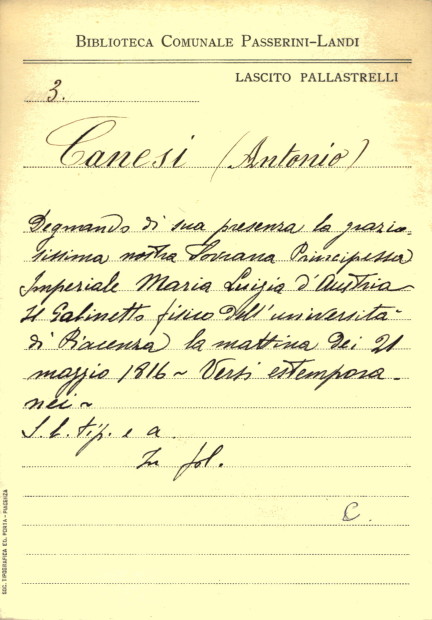 BIBLIOTECA COMUNALE PASSERINI-LANDI
LASCITO PALLASTRELLI
3.
Canesi (Antonio)
Degnando di sua presenza la grazio-
sissima nostra Sovrana Principessa
Imperiale Maria Luigia d'Austria
Il Gabinetto fisico dell'università
di Piacenza la mattina dei 21
maggio 1816 ~ Versi estempora-
nei ~
S. l. tip. e a.
In fol.
C.
SOC. TIPOGRAFICA ED. PORTA - PIACENZA